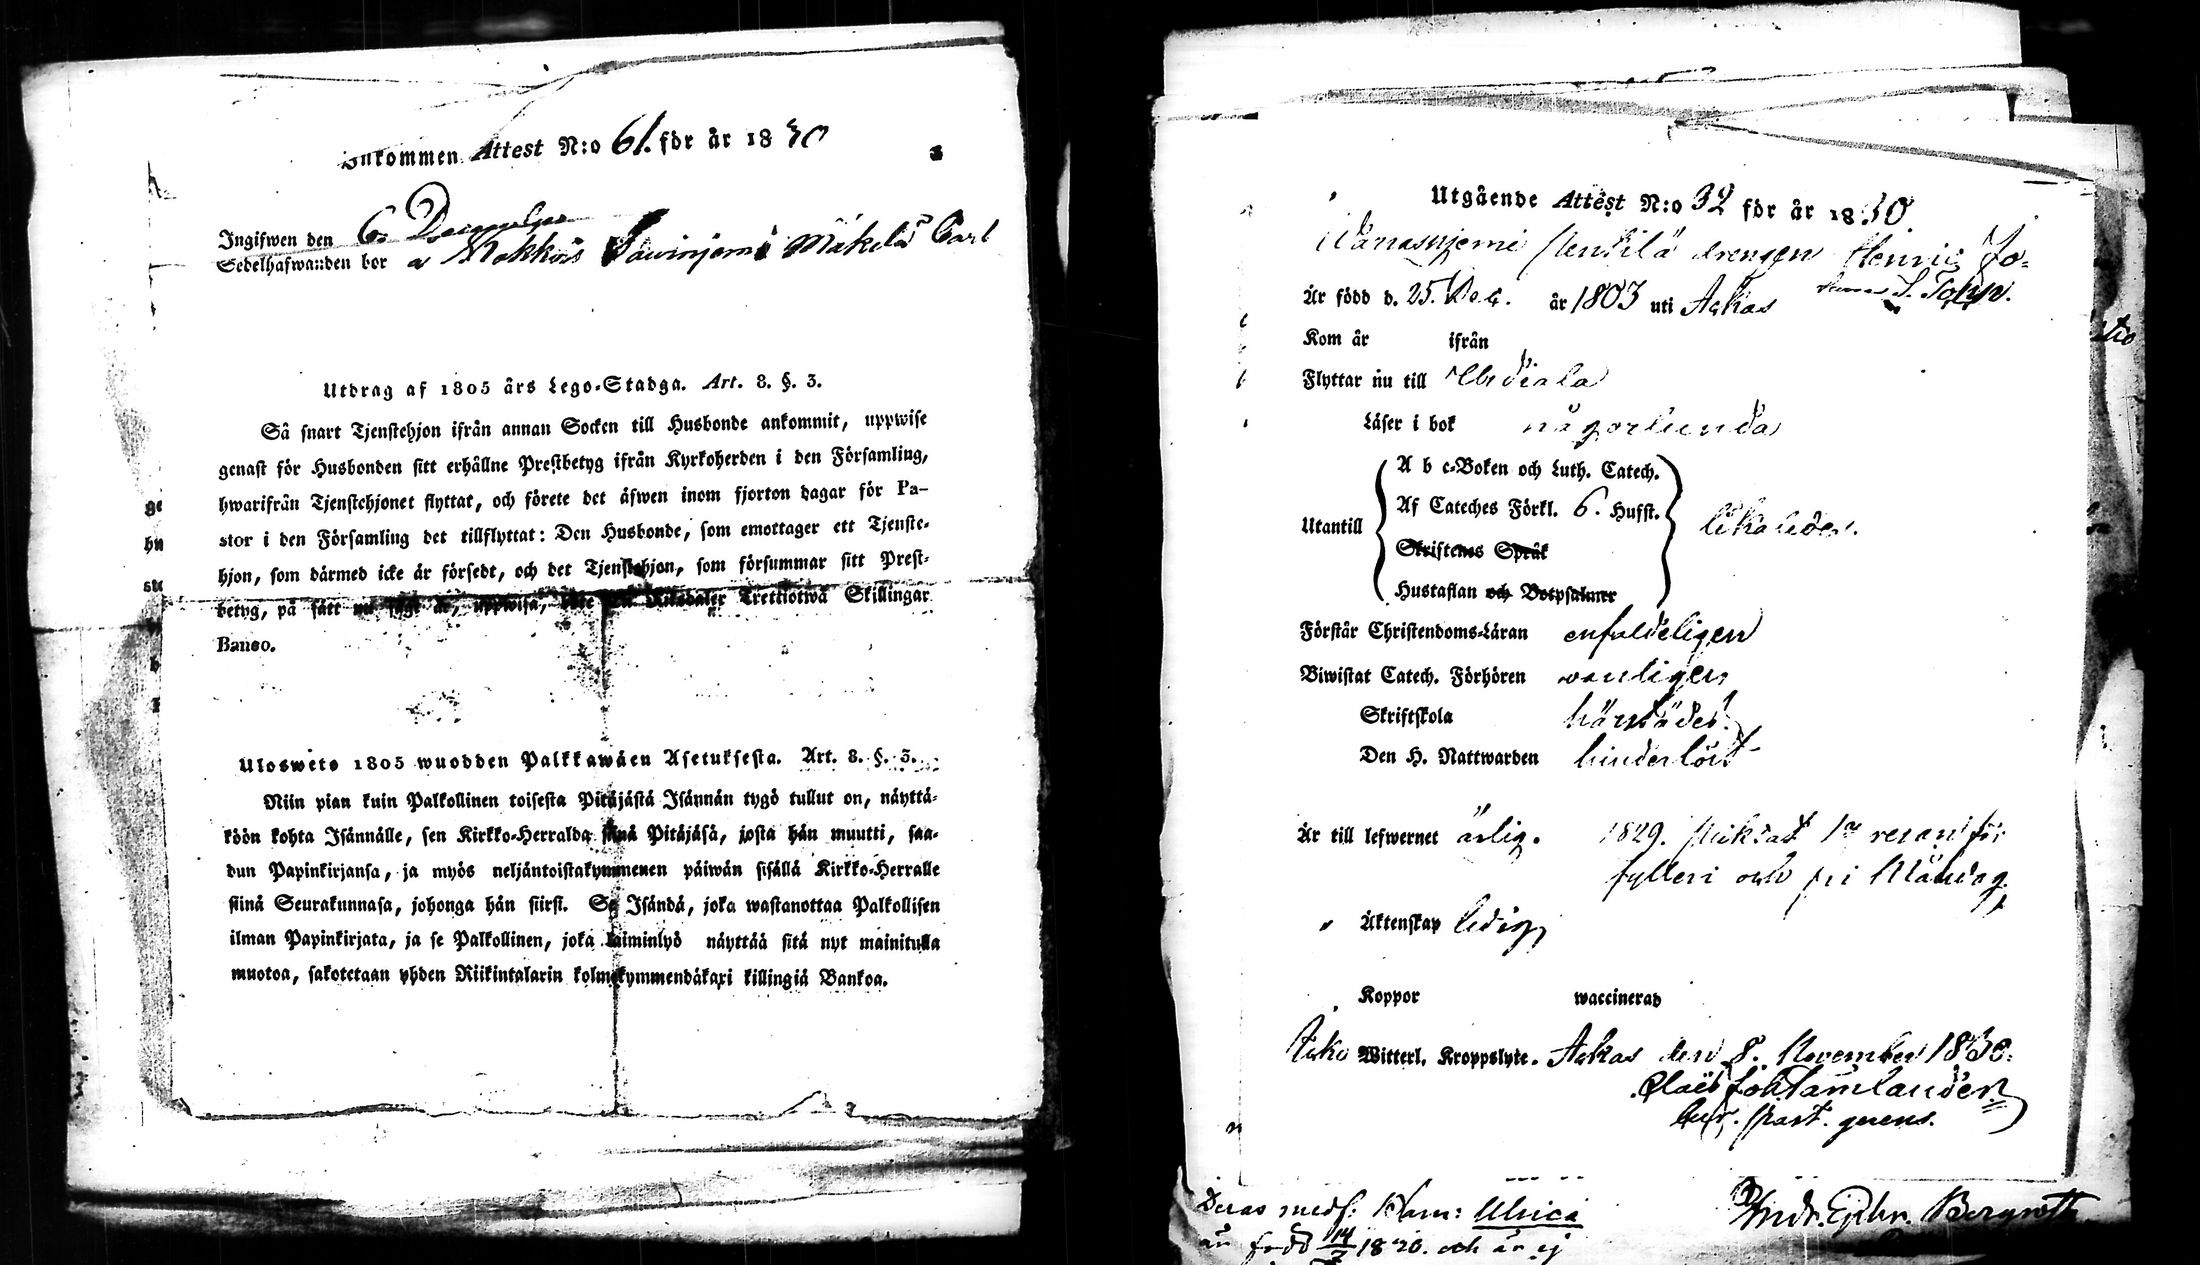 Inkommen Attest N:o 61. för år 1830
Ingifwen den 6 December
Sedelhafwanden bor a Kokkois Sawinjemi Mäkelä Carl
Utdrag af 1805 års Lego-Stadga. Art. 8. §. 3.
Så snart Tjenstehjon ifrån annan Socken till Husbonde ankommit, uppwise
genast för Husbonden sitt erhållne Prestbetyg ifrån Kyrkoherden i den Församling,
hwarifrån Tjenstehjonet flyttat, och förete det äfwen inom fjorton dagar för Pa-
stor i den Församling det tillflyttat: Den Husbonde, som emottager ett Tjenste-
hjon, som därmed icke är försedt, och det Tjenstehjon, som försummar sitt Prest-
betyg, på sätt nu sagt är, uppwisa, Riksdaler Trettiotwå Skillingar
Banco.
Ulosweto 1805 wuodden Palkkawäen Asetuksesta. Art. 8. §. 3.
Niin pian kuin Palkollinen toisesta Pitäjästä Isännän tygö tullut on, näyttä-
köön kohta Isännälle, sen Kirkko-Herralda siinä Pitäjäsä, josta hän muutti, saa-
dun Papinkirjansa, ja myös neljäntoistakymmenen päiwän sisällä Kirkko-Herralle
siinä Seurakunnasa, johonga hän siirsi. Se Isändä, joka wastanottaa Palkollisen
ilman Papinkirjata, ja se Palkollinen, joka laiminlyö näyttää sitä nyt mainitulla
muotoa, sakotetaan yhden Riikintalarin kolmekymmendäkaxi killingiä Bankoa.
Utgående Attest N:o 32 för år 1830
drengen Henric Jo-
Är född d. 25. Dec. år 1803 uti Ackas
Kom år ifrån
Flyttar nu till Urdiala
Läser i bok någorlunda
A b c-Boken och Luth. Catech.
Af Cateches Förkl. 6. Hufst.
Utantill likaledes.
Skriftenes Språk
Hustaflan och Botpsalmer
Förstår Christendoms-Läran enfaldeligen
Biwistat Catech. Förhören wanligen
Skriftskola härstädes
Den H. Nattwarden hinderlöst
Är till lefwernet ärlig. 1829. pliktat 1a resan för
fylleri och
Äktenskap ledig
Koppor waccinerad
Icke Witterl. Kroppslyte. Ackas den 8. November 1830.
Claës Joh Tamlander
Cur. past. gerens.
Deras medf: Barn: Ulrica
är född 14/7 1820. och är ej
Andr. Ephr. Bergroth